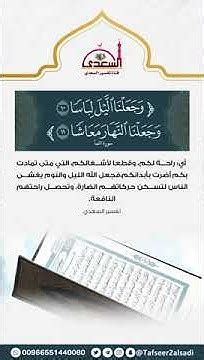 السعدي
قناة تفسير السعدي
﴿ وَجَعَلْنَا ٱلَّيْلَ لِبَاسًا ١٠
وَجَعَلْنَا ٱلنَّهَارَ مَعَاشًا ١١ ﴾
سورة النبأ
أي: راحة لكم، وقطعا لأشغالكم التي متى تمادت
بكم أضرت بأبدانكم، فجعل الله الليل والنوم يغشى
الناس لتسكن حركاتهم الضارة، وتحصل راحتهم
النافعة.
تفسير السعدي
00966551440080
@Tafseer2alsadi